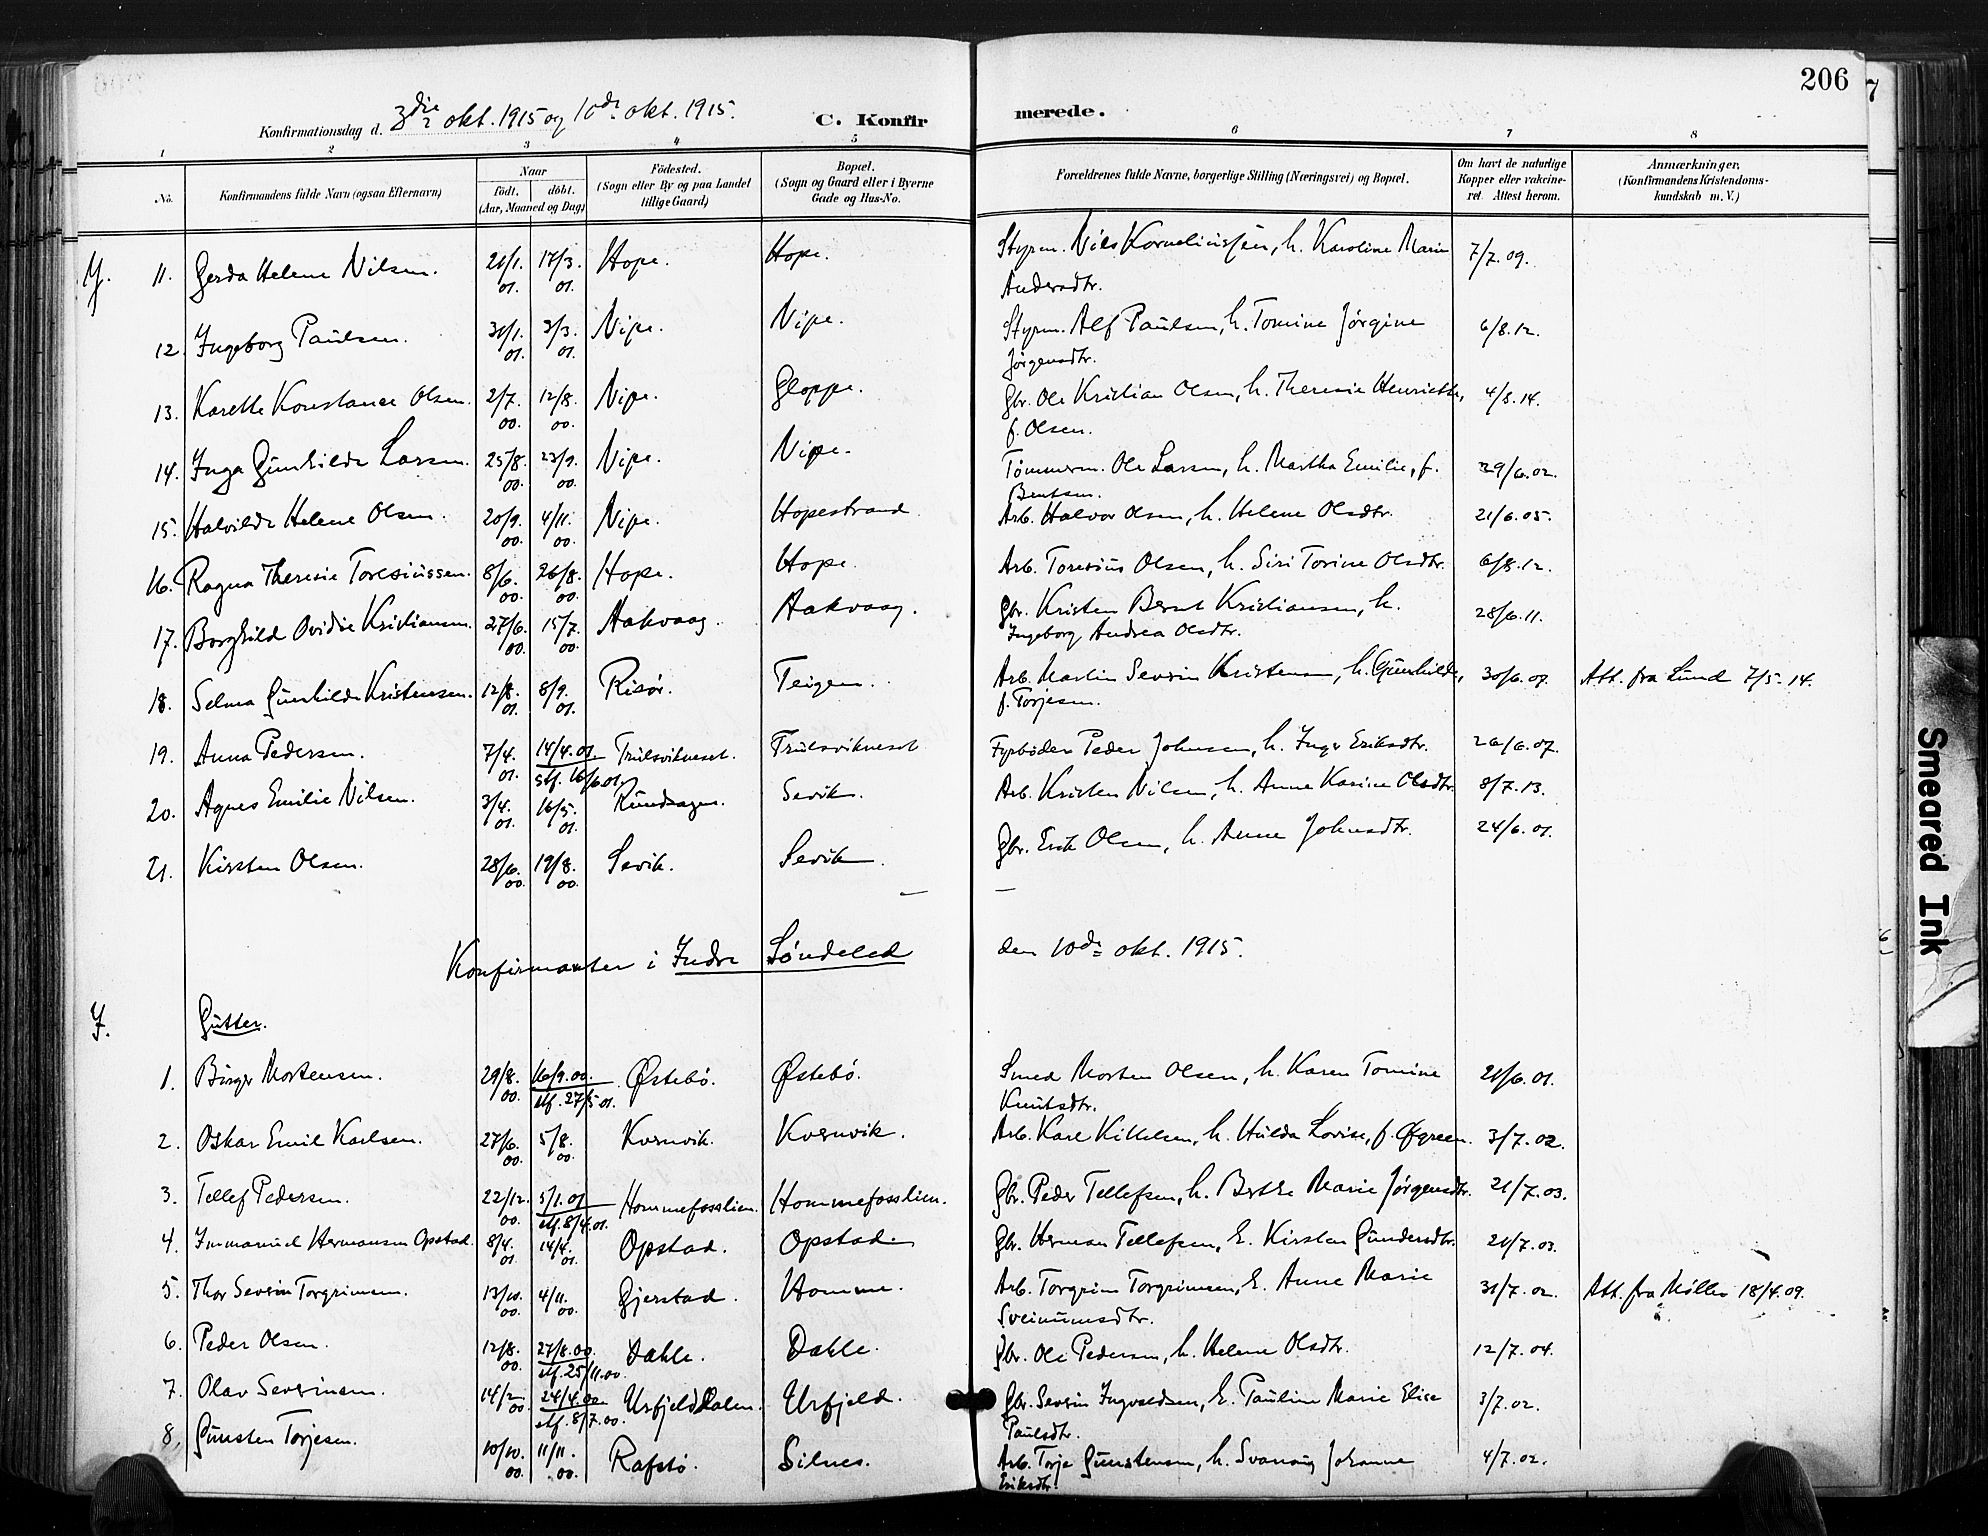 206
7
Konfirmationsdag d. 3die okt. 1915 og 10de okt. 1915. C. Konfirmerede.
1 2 3 4 5 6 7 8
No. Konfirmandens fulde Navn (ogsaa Efternavn) Naar født. døbt. (Aar, Maaned og Dag) Fødested. (Sogn eller By og paa Landet tillige Gaard) Bopæl. (Sogn og Gaard eller i Byerne Gade og Hus-No. Forældrenes fulde Navne, borgerlige Stilling (Næringsvei) og Bopæl. Om havt de naturlige Kopper eller vakcineret. Attest herom. Anmærkninger. (Konfirmandens Kristendomskundskab m. V.)
Y.
11. Gerda Helene Nilsen. 21/1. 01. 17/3. 01. Hope. Hope. Styrm. Nils Korneliussen, h. Karoline Marie Andersdtr. 7/7. 09.
12. Ingeborg Paulsen. 31/1. 01. 3/3. 01. Nipe. Nipe. Styrm. Alf Paulsen, h. Tomine Jørgine Jørgensdtr. 6/8. 12.
13. Karelle Konstance Olsen. 2/7. 00. 12/8. 00. Nipe. Gloppe. Gbr. Ole Kristian Olsen, h. Theresie Henriette, f. Olsen. 4/8. 14.
14. Inga Gunhilde Larsen. 25/8. 00. 23/9. 00. Nipe. Nipe. Tømmerm. Ole Larsen, h. Martha Emilie, f. Bentsen. 29/6. 02.
15. Halvilde Helene Olsen. 20/9. 00. 4/11. 00. Nipe. Hopestrand. Arb. Halvor Olsen, h. Helene Olsdtr. 21/6. 05.
16. Ragna Theresie Toresiussen. 8/6. 00. 26/8. 00. Hope. Hope. Arb. Toresius Olsen, h. Siri Torine Olsdtr. 6/8. 12.
17. Borghild Ovidie Kristiansen. 27/6. 00. 15/7. 00. Aakvaag. Aakvaag. Gbr. Kristen Bernt Kristiansen, h. Ingeborg Andrea Olsdtr. 28/6. 11.
18. Selma Gunhilde Kristensen. 12/8. 01. 8/9. 01. Risør. Teigen. Arb. Martin Severin Kristensen, h. Gunhilde, f. Torjesen. 30/6. 07. Att. fra Lund 7/5. 14.
19. Anna Pedersen. 7/4. 01. 14/4. 01. stf. 16/6 01. Trulsvikneset. Trulsvikneset Fyrbøder Peder Johnsen, h. Inger Eriksdtr. 26/6. 07.
20. Agnes Emilie Nilsen. 3/4. 01. 16/5. 01. Sevik. Arb. Kristen Nilsen, h. Anne Karine Olsdtr. 8/7. 13.
21. Kirsten Olsen. 28/6. 00. 19/8. 00. Sevik. Sevik. Gbr. Erik Olsen, h. Anne Johnsdtr. 24/6. 01.
Konfirmanter i Indre Søndeled den 10de okt. 1915.
I. Gutter.
1. Birger Mortensen. 29/8. 00. 16/9. 00. stf. 27/5 01. Østebø. Østebø. Smed Morten Olsen, h. Karen Tomine Knutsdtr. 21/6. 01.
2. Oskar Emil Karlsen. 27/6. 00. 5/8. 00. Kvernvik. Kvernvik. Arb. Karl Kittelsen, h. Hulda Lovise, f. Øygreen. 3/7. 02.
3. Tellef Pedersen. 22/12. 00. 5/1. 01 stf. 8/4. 01. Hommefosslien. Hommefosslien. Gbr. Peder Tellefsen, h. Berthe Marie Jørgensdtr. 21/7. 03.
4. Immanuel Hermansen Opstad. 8/4. 01 14/4. 01. Opstad. Opstad. Gbr. Herman Tellefsen, h. Kirsten Gundersdtr. 21/7. 03.
5. Thor Severin Torgrimsen. 13/10. 00. 4/11. 00. Gjerstad. Homme. Arb. Torgrim Torgrimsen, h. Anne Marie Sveinumsdtr. 31/7. 02. Att. fra Møller 18/4. 09.
6. Peder Olsen. 12/8. 00. 27/8. 00. stf. 25/11. 00. Dahle. Dahle. Gbr. Ole Pedersen, h. Helene Olsdtr. 12/7. 04.
7. Olav Severinsen. 14/2 00. 24/4. 00. stf. 8/7. 00. Urfjelddalen. Urfjeld. Gbr. Severin Ingvaldsen, h. Pauline Marie Elise Paulsdtr. 3/7. 02.
8. Gunsten Torjesen. 10/10. 00. 11/11. 00. Rafstø. Silnes. Arb. Torje Gunstensen, h. Svanaug Johanne Eriksdtr. 4/7. 02.
Smeared Ink